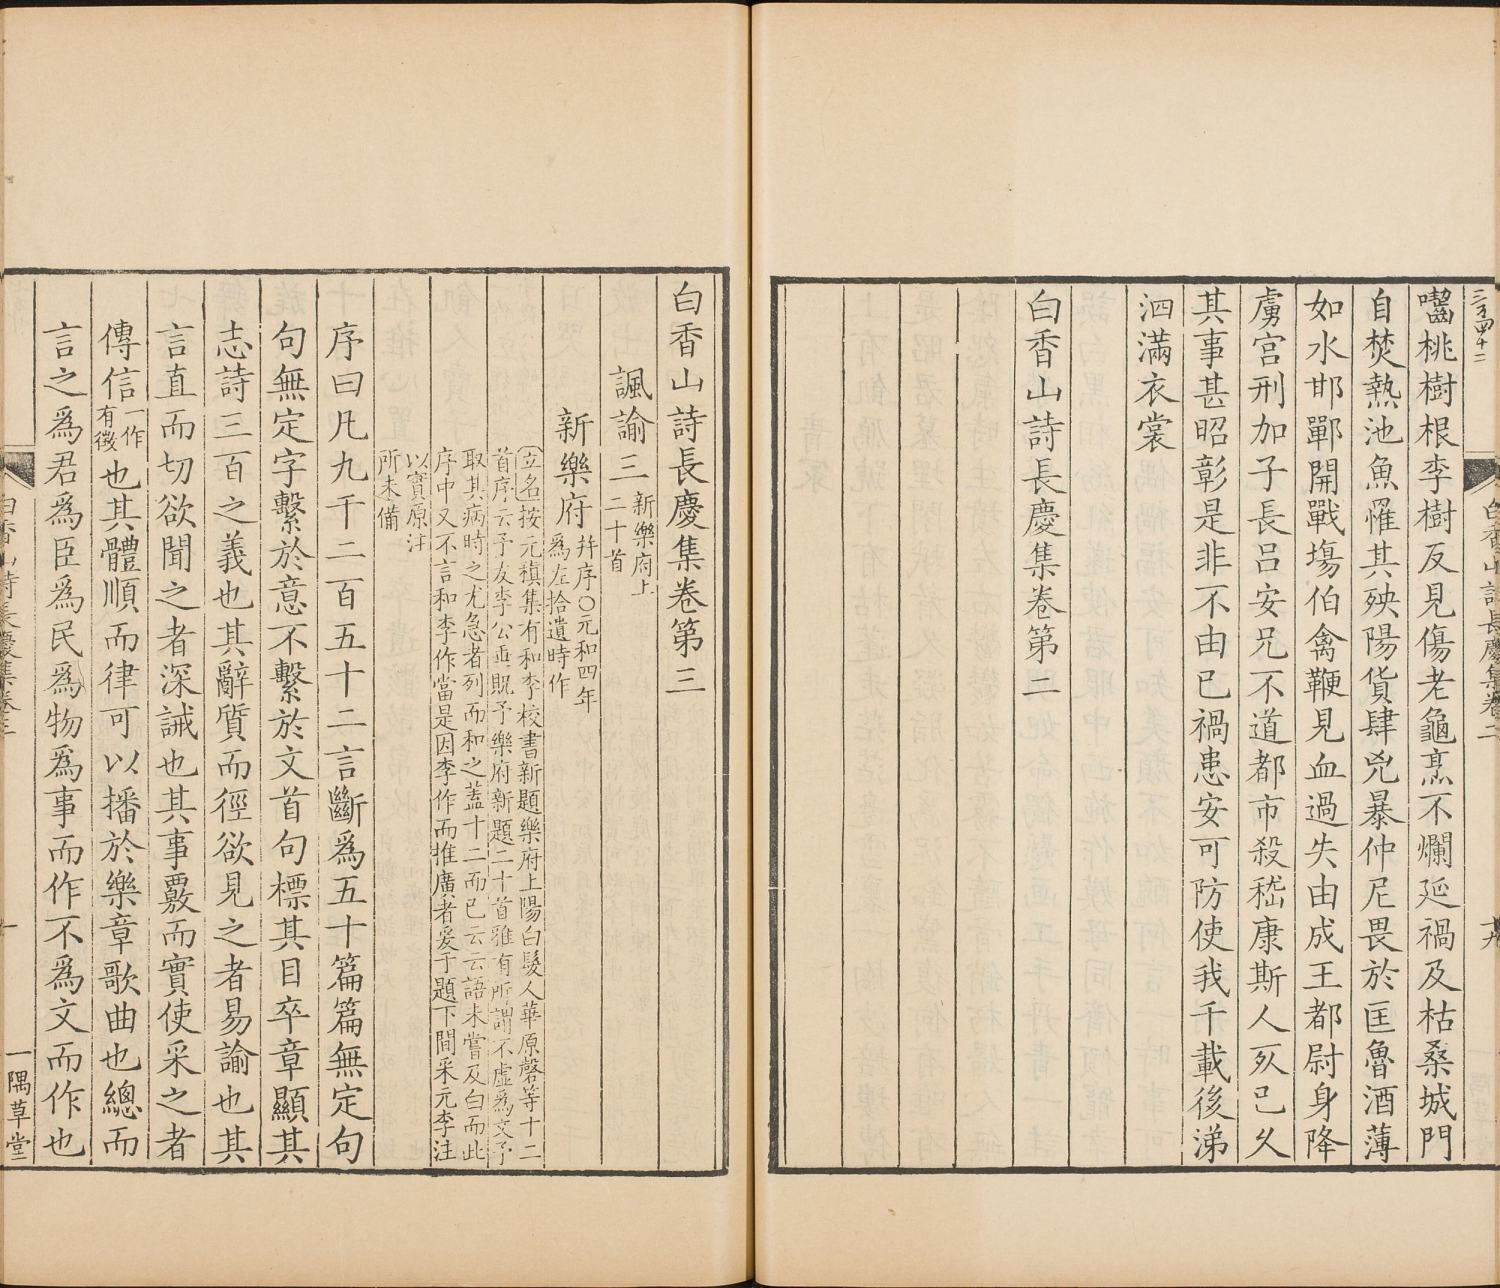 三百四十二
白香山詩長慶集卷二
十九
囓桃樹根李樹反見傷老龜烹不爛延禍及枯桑城門
自焚爇池魚罹其殃陽貨肆兇暴仲尼畏於匡魯酒薄
如水邯鄲開戰場伯禽鞭見血過失由成王都尉身降
虜宮刑加子長呂安兄不道都市殺嵇康斯人死已久
其事甚昭彰是非不由己禍患安可防使我千載後涕
泗滿衣裳
白香山詩長慶集卷第二
白香山詩長慶集卷第三
諷諭三
新樂府上
二十首
新樂府
并序〇元和四年
為左拾遺時作
立名按元稹集有和李校書新題樂府上陽白髮人華原磬等十二
首序云予友李公垂貺予樂府新題二十首雅有所謂不虛為文予
取其病時之尤急者列而和之蓋十二而已云云語未嘗及白而此
序中又不言和李作當是因李作而推廣者爰于題下間采元李注
以實原注
所未備
序曰凡九千二百五十二言斷為五十篇篇無定句
句無定字繫於意不繫於文首句標其目卒章顯其
志詩三百之義也其辭質而徑欲見之者易諭也其
言直而切欲聞之者深誡也其事覈而實使采之者
傳信一作有徵也其體順而律可以播於樂章歌曲也總而
言之為君為臣為民為物為事而作不為文而作也
白香山詩長慶集卷三
一
一隅草堂